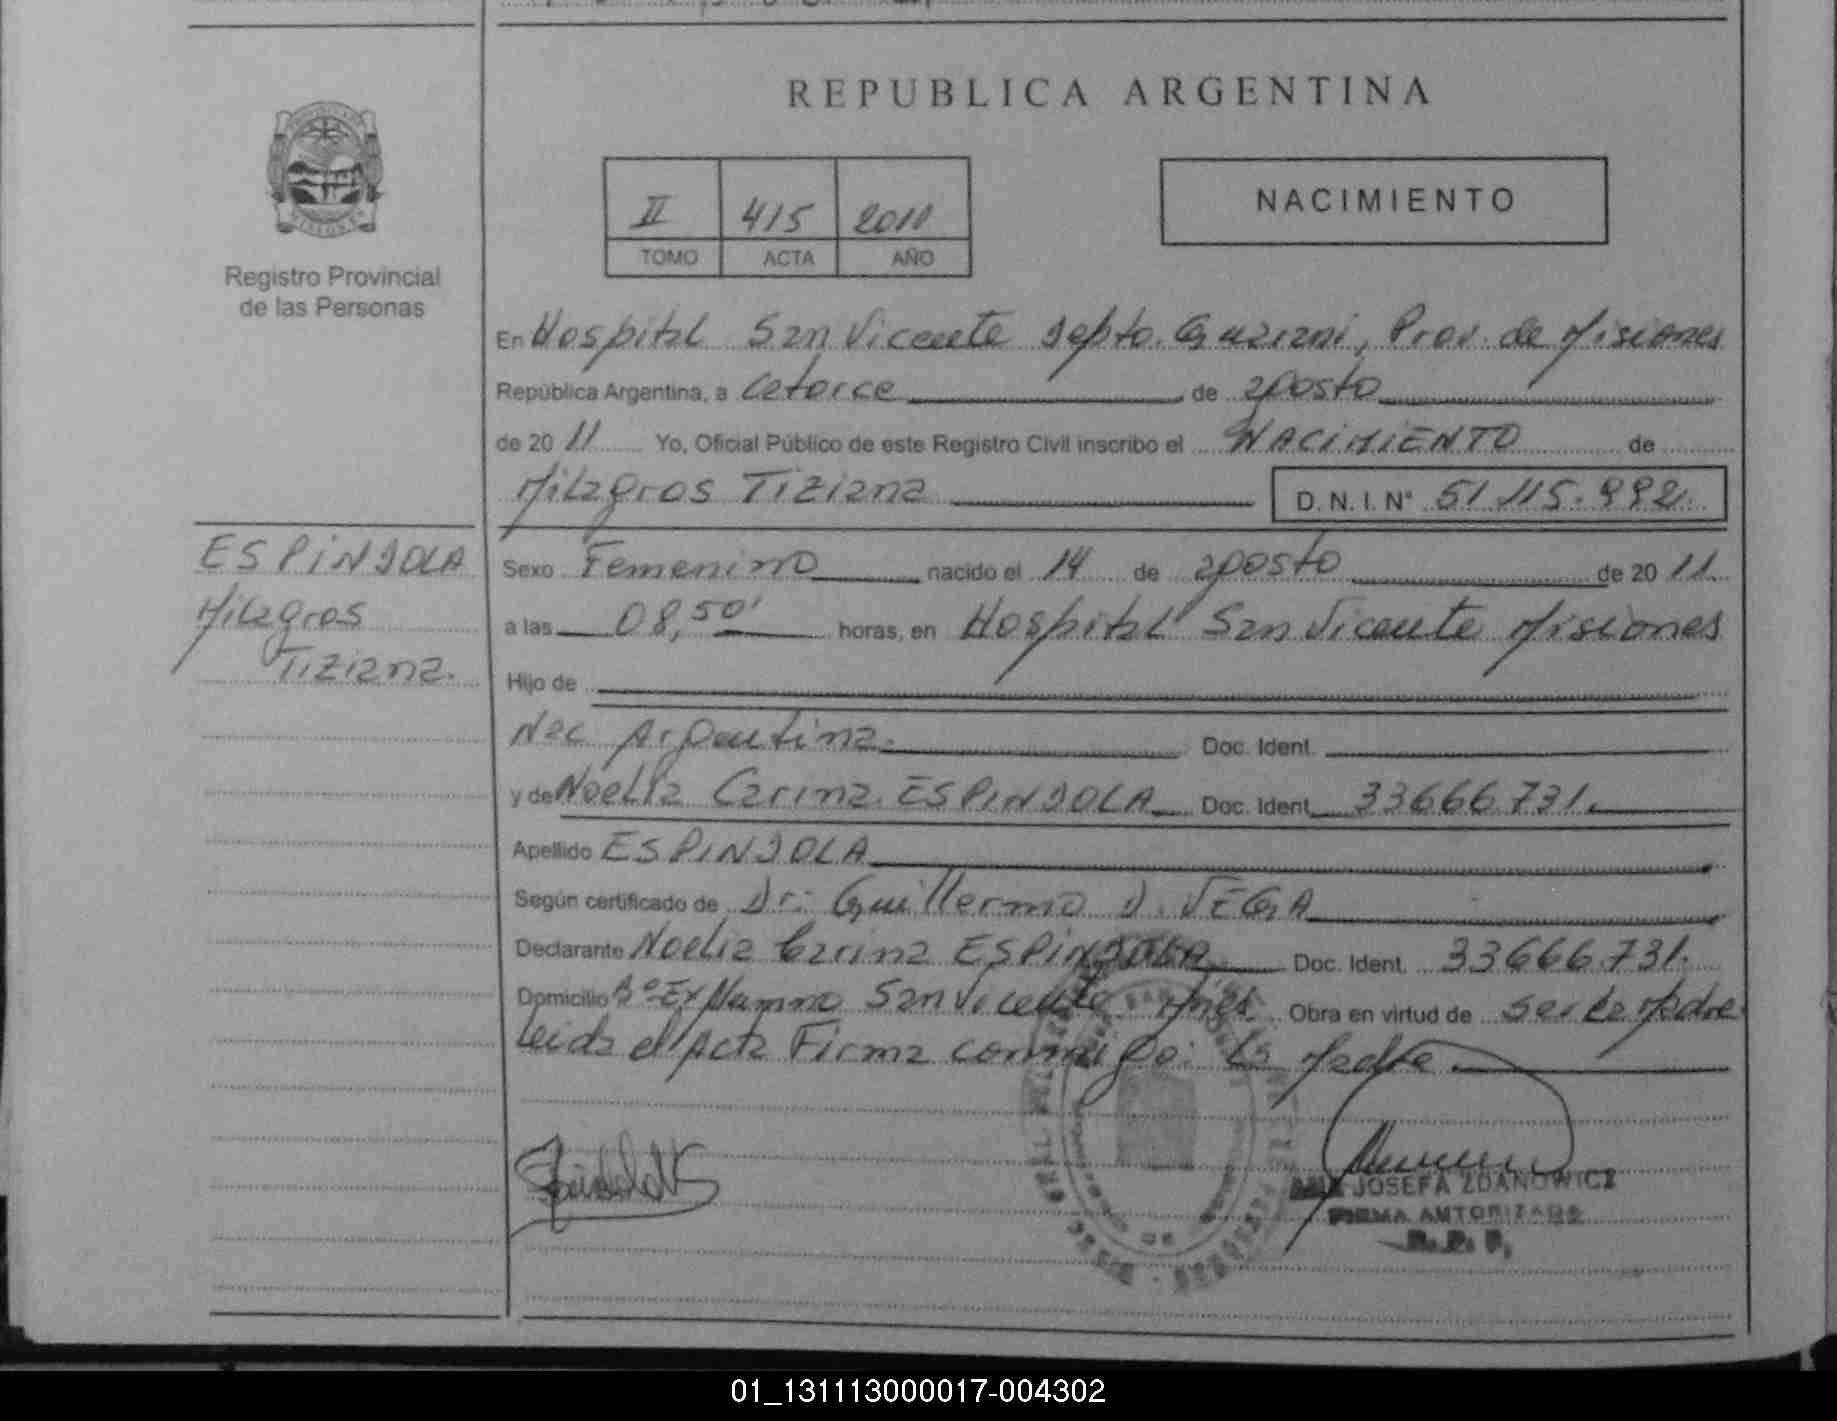 REPUBLICA ARGENTINA
II 415 2011
TOMO ACTA AÑO
NACIMIENTO
Registro Provincial
de las Personas
En Hospital San Vicente Depto. Guarani, Prov. de Misiones
República Argentina, a Catorce de agosto
de 2011 Yo, Oficial Público de este Registro Civil inscribo el NACIMIENTO de
Milagros Tiziana D.N.I. N° 51.115.992.
ESPINDOLA
Milagros
Tiziana.
Sexo Femenino nacido el 14 de agosto de 2011
a las 08,50' horas, en Hospital San Vicente Misiones
Hijo de
Nac Argentina. Doc. Ident.
y de Noelia Carina ESPINDOLA Doc. Ident. 33666731.
Apellido ESPINDOLA
Según certificado de Dr: Guillermo D. VEGA
Declarante Noelia Carina ESPINDOLA Doc. Ident. 33666731.
Domicilio B° Ex San Vicente Mnes. Obra en virtud de ser la Madre
Leida el Acta Firma conmigo: La Madre
JOSEFA ZDANOWICZ
FIRMA AUTORIZADA
R. P. P.
01_131113000017-004302